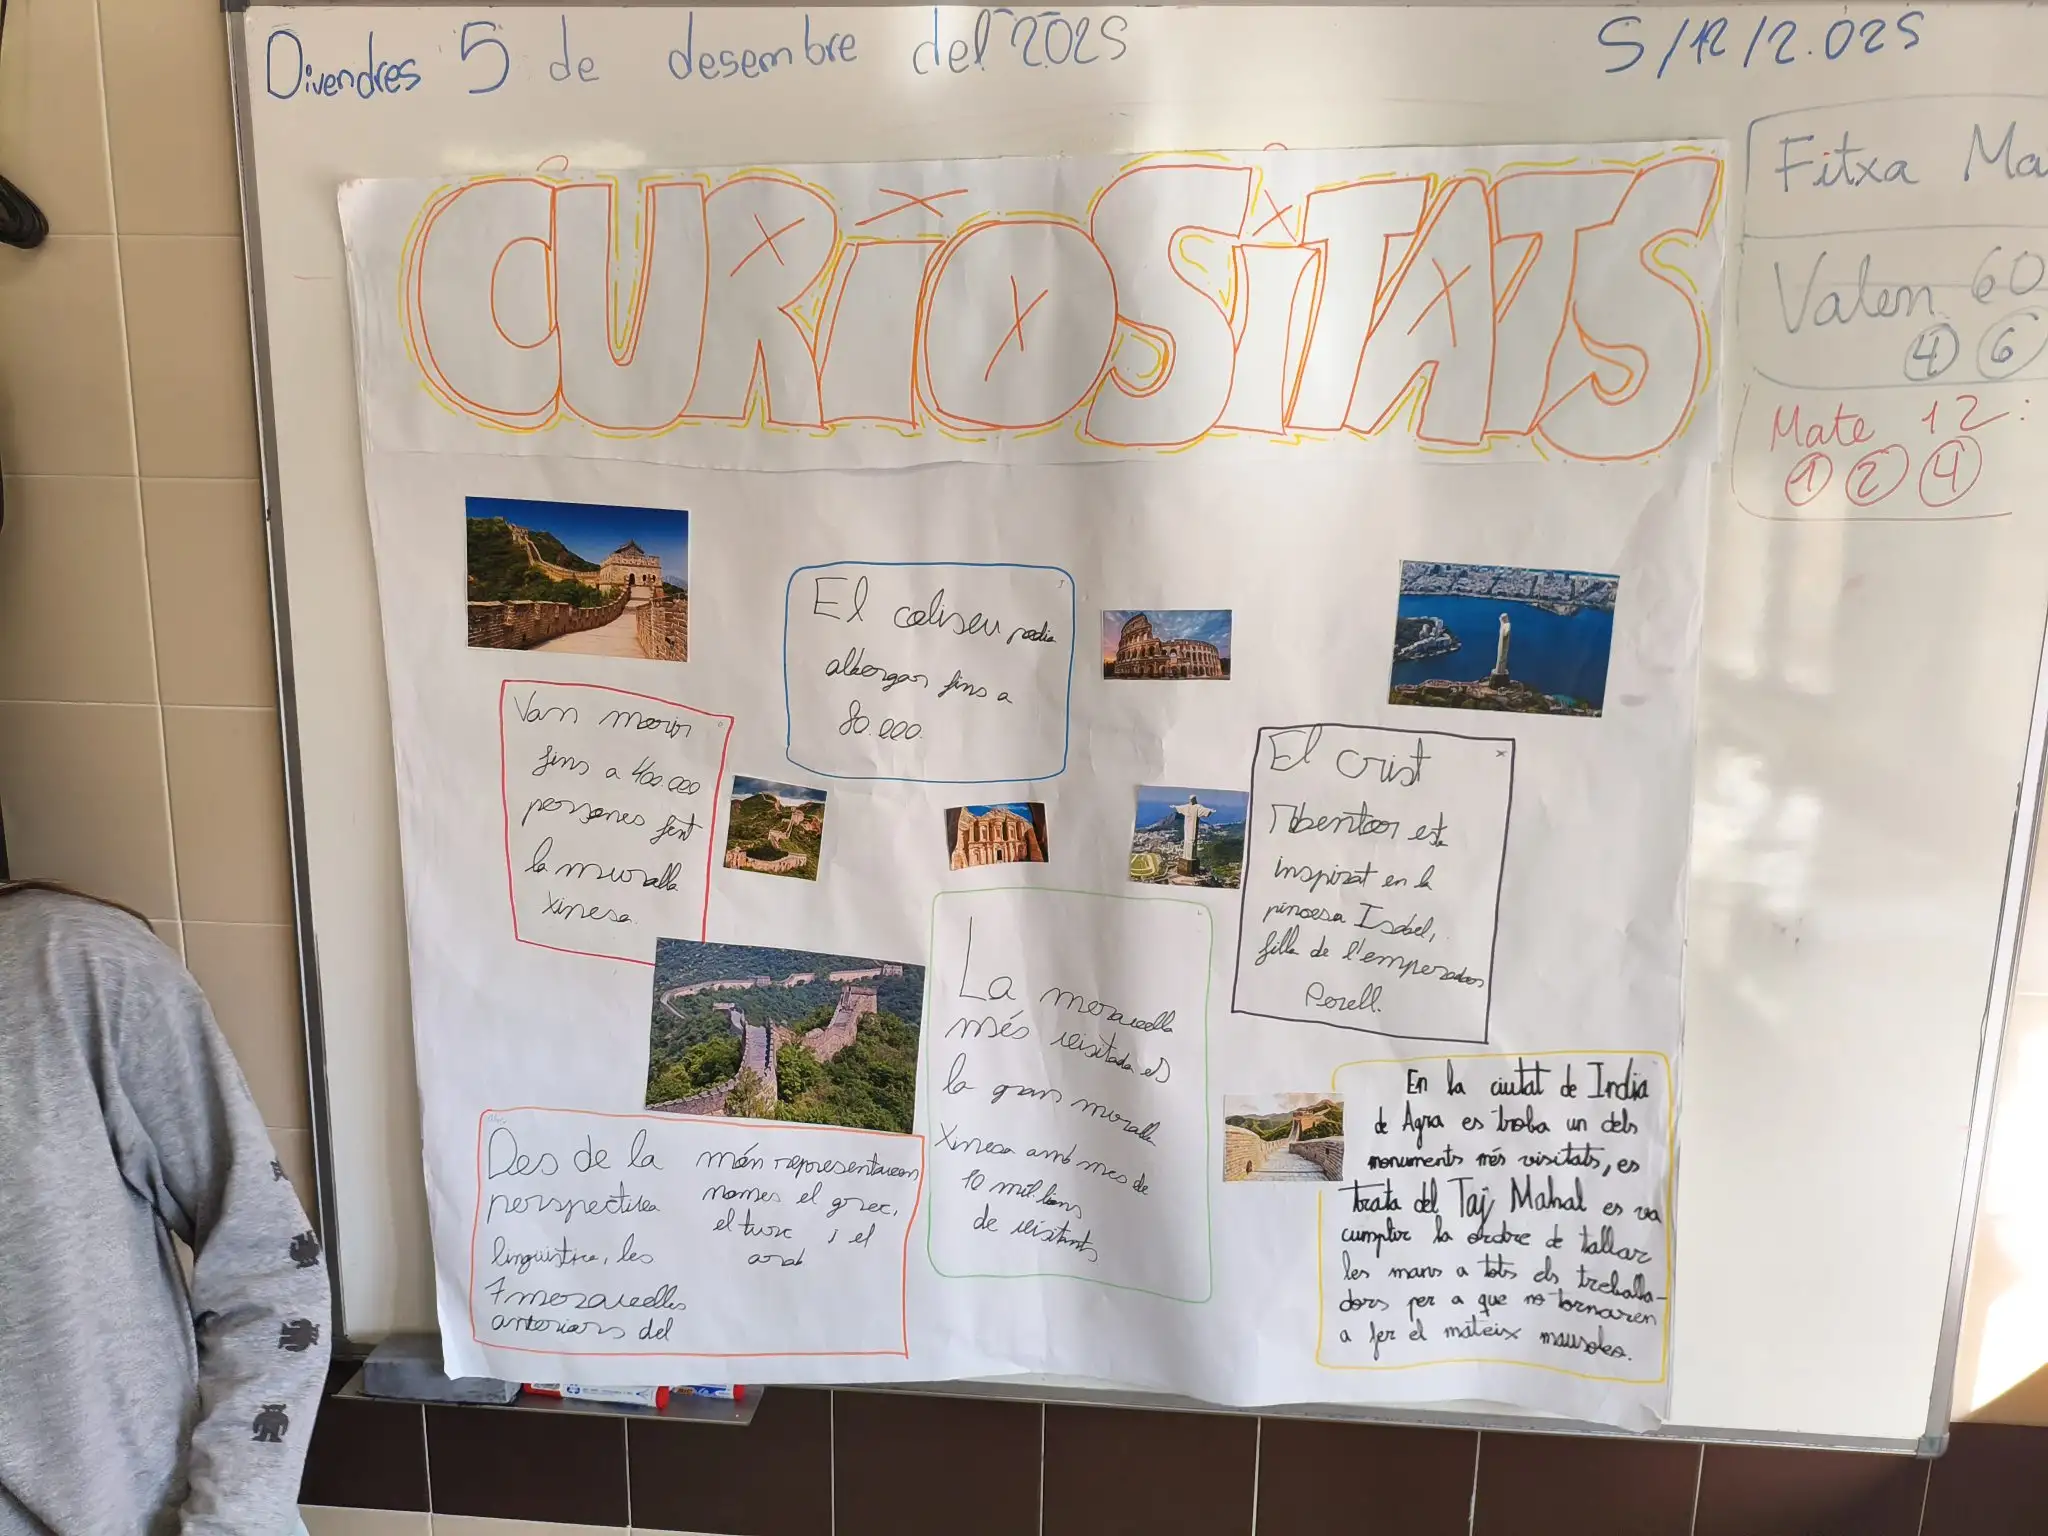 Divendres 5 de desembre del 2025
5/12/2.025
Fitxa Ma
Valen 60
4 6
Mate 12:
1 2 4
CURiOSiTATS
El coliseu podia
albergar fins a
80.000.
Van morir
fins a 400.000
persones fent
la muralla
xinesa.
El crist
rdentor està
inspirat en la
princesa Isabel,
filla de l'emperador
La meravella
més visitada és
la gran muralla
Xinesa amb mes de
10 mil·lions
de visitants
Des de la
perspectiva
lingüística, les
7 meravelles
anteriors del
món representaven
nomes el grec,
el turc i el
arab
En la ciutat de India
de Agra es troba un dels
monuments més visitats, es
trata del Taj Mahal es va
cumplir la ordre de tallar
les mans a tots els treballa-
dors per a que no tornaren
a fer el mateix mausoleo.